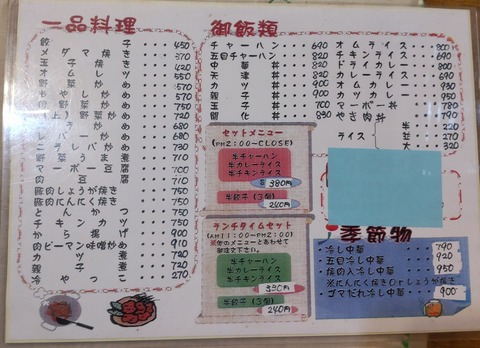 一品料理
餃子 450
メダマ焼き 370
玉子焼き 420
オムレツ 550
野菜炒め 570
もやし炒め 570
肉野菜炒め 750
レバー炒め 680
ニラレバ炒め 730
野菜うま煮 710
マーボー豆腐 770
肉豆腐 770
豚肉しょうが焼き 750
豚肉にんにく焼き 750
とんかつ 750
チキンカツ 750
から揚げ 900
肉ピーマン味噌炒め 910
カツ煮
親子煮
冷やっこ 270
御飯類
チャーハン 690
五目チャーハン 820
中華丼 820
天津丼 820
カツ丼 900
親子丼
玉子丼 700
開化丼 830
オムライス 800
チキンライス
ドライカレー
カレーライス
オムカレー
カツカレー
マーボー丼 780
やき肉丼
ライス
半 220
並 270
大 320
セットメニュー
(PM2:00~CLOSE)
半チャーハン
半カレーライス
半チキンライス
380円
半餃子(3個)
240円
ランチタイムセット
(AM11:00~PM2:00)
※他のメニューとあわせて
御注文下さい。
半チャーハン
半カレーライス
半チキンライス
330円
半餃子(3個)
240円
季節物
冷し中華 790
五目冷し中華 920
焼肉入冷し中華 950
※にんにく焼きOrしょうが焼き
ゴマだれ冷し中華 900